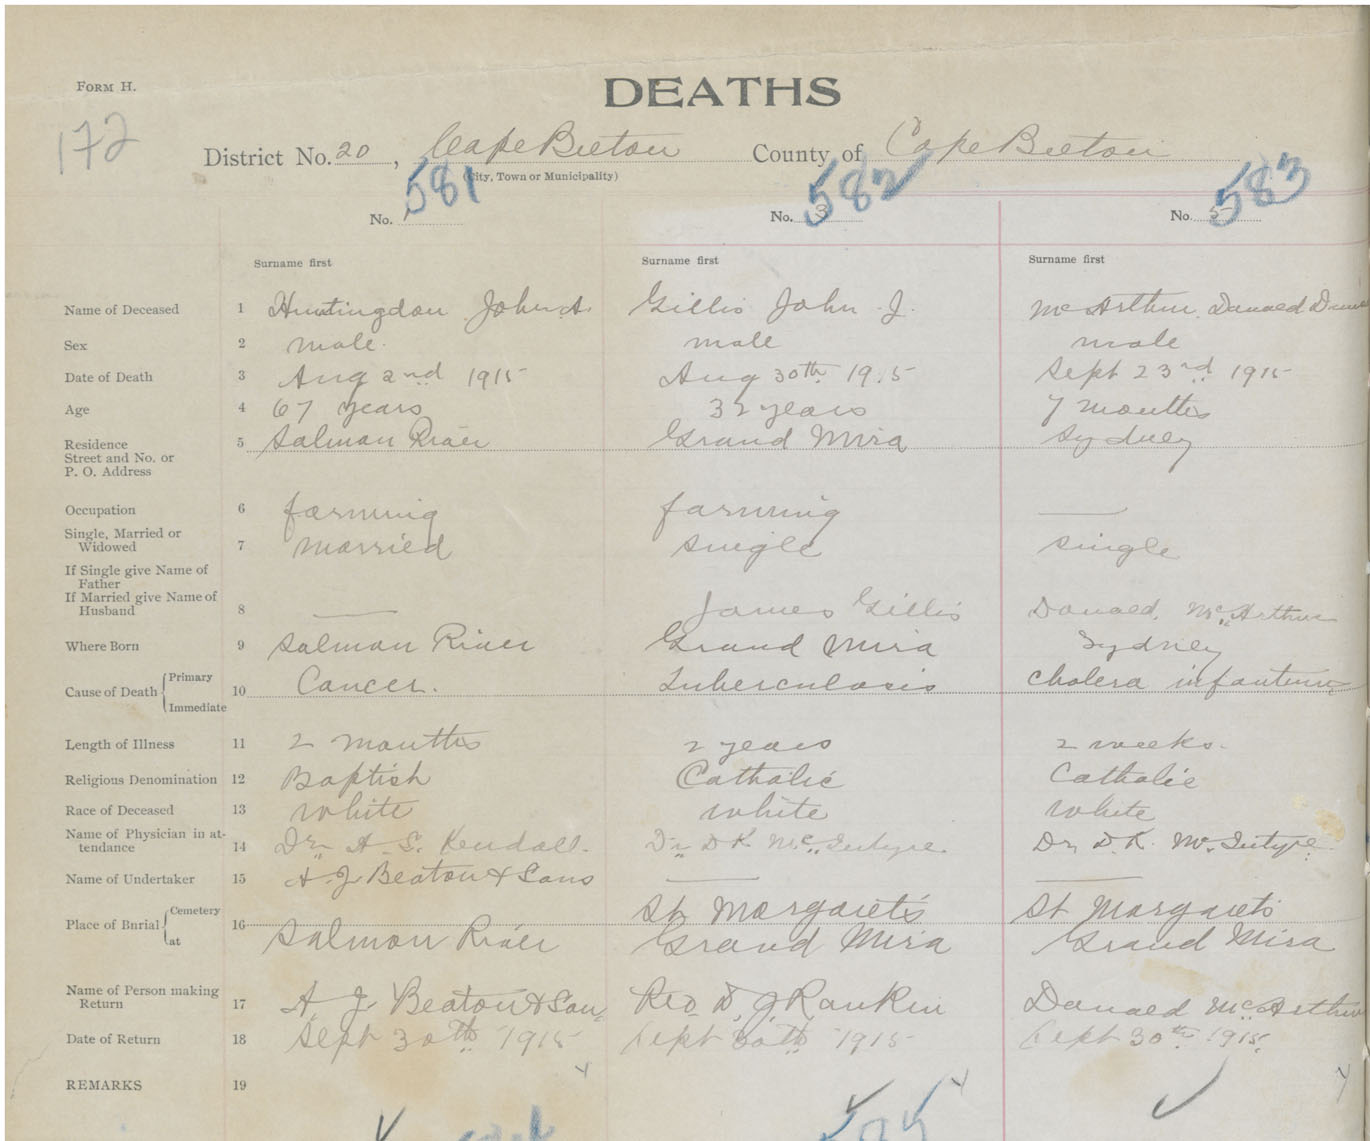 FORM H.
DEATHS
172
District No. 20, Cape Breton County of Cape Breton
(City, Town or Municipality)
581 582 583
No. 1 No. 3 No. 5
Surname first Surname first Surname first
Name of Deceased 1 Huntingdon John A. Gillis John J. McArthur Donald
Sex 2 male. male male
Date of Death 3 Aug 2nd 1915 Aug 30th 1915 Sept 23rd 1915
Age 4 67 years 32 years 7 months
Residence 5 Salmon River Grand Mira Sydney
Street and No. or
P. O. Address
Occupation 6 farming farming —
Single, Married or
Widowed 7 married single single
If Single give Name of
Father
If Married give Name of
Husband 8 — James Gillis Donald McArthur
Where Born 9 Salmon River Grand Mira Sydney
Cause of Death { Primary
10 Cancer. Tuberculosis cholera infantum
Immediate
Length of Illness 11 2 months 2 years 2 weeks.
Religious Denomination 12 Baptish Catholic Catholic
Race of Deceased 13 white white white
Name of Physician in at-
tendance 14 Dr. A. S. Kendall. Dr. D K. McIntyre Dr. D. K. McIntyre
Name of Undertaker 15 A. J Beaton & Sons — —
Place of Burial { Cemetery 16 St Margarets St Margarets
at Salmon River Grand Mira Grand Mira
Name of Person making
Return 17 A. J Beaton & Son Rev. D. J. Rankin Donald McArthur
Date of Return 18 Sept 30th 1915 Sept 30th 1915 Sept 30th 1915.
REMARKS 19